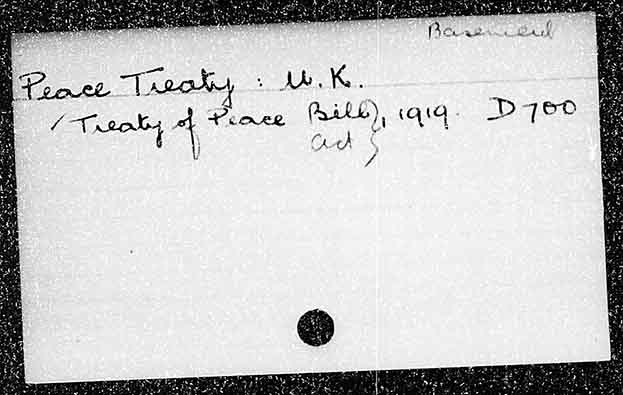 Basement
Peace Treaty : U.K.
Treaty of Peace Bill), 1919. D700
Act }